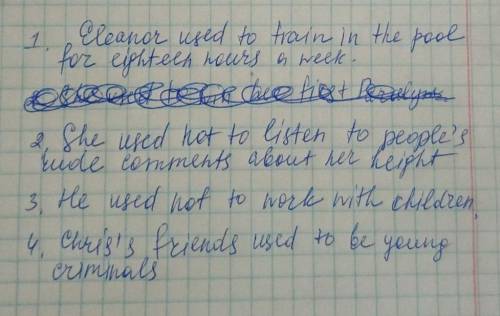 1. Eleanor used to train in the pool
for eighteen hours a week.
2. She used not to listen to people's
rude comments about her height
3. He used not to work with children.
4. Chris's friends used to be young
criminals